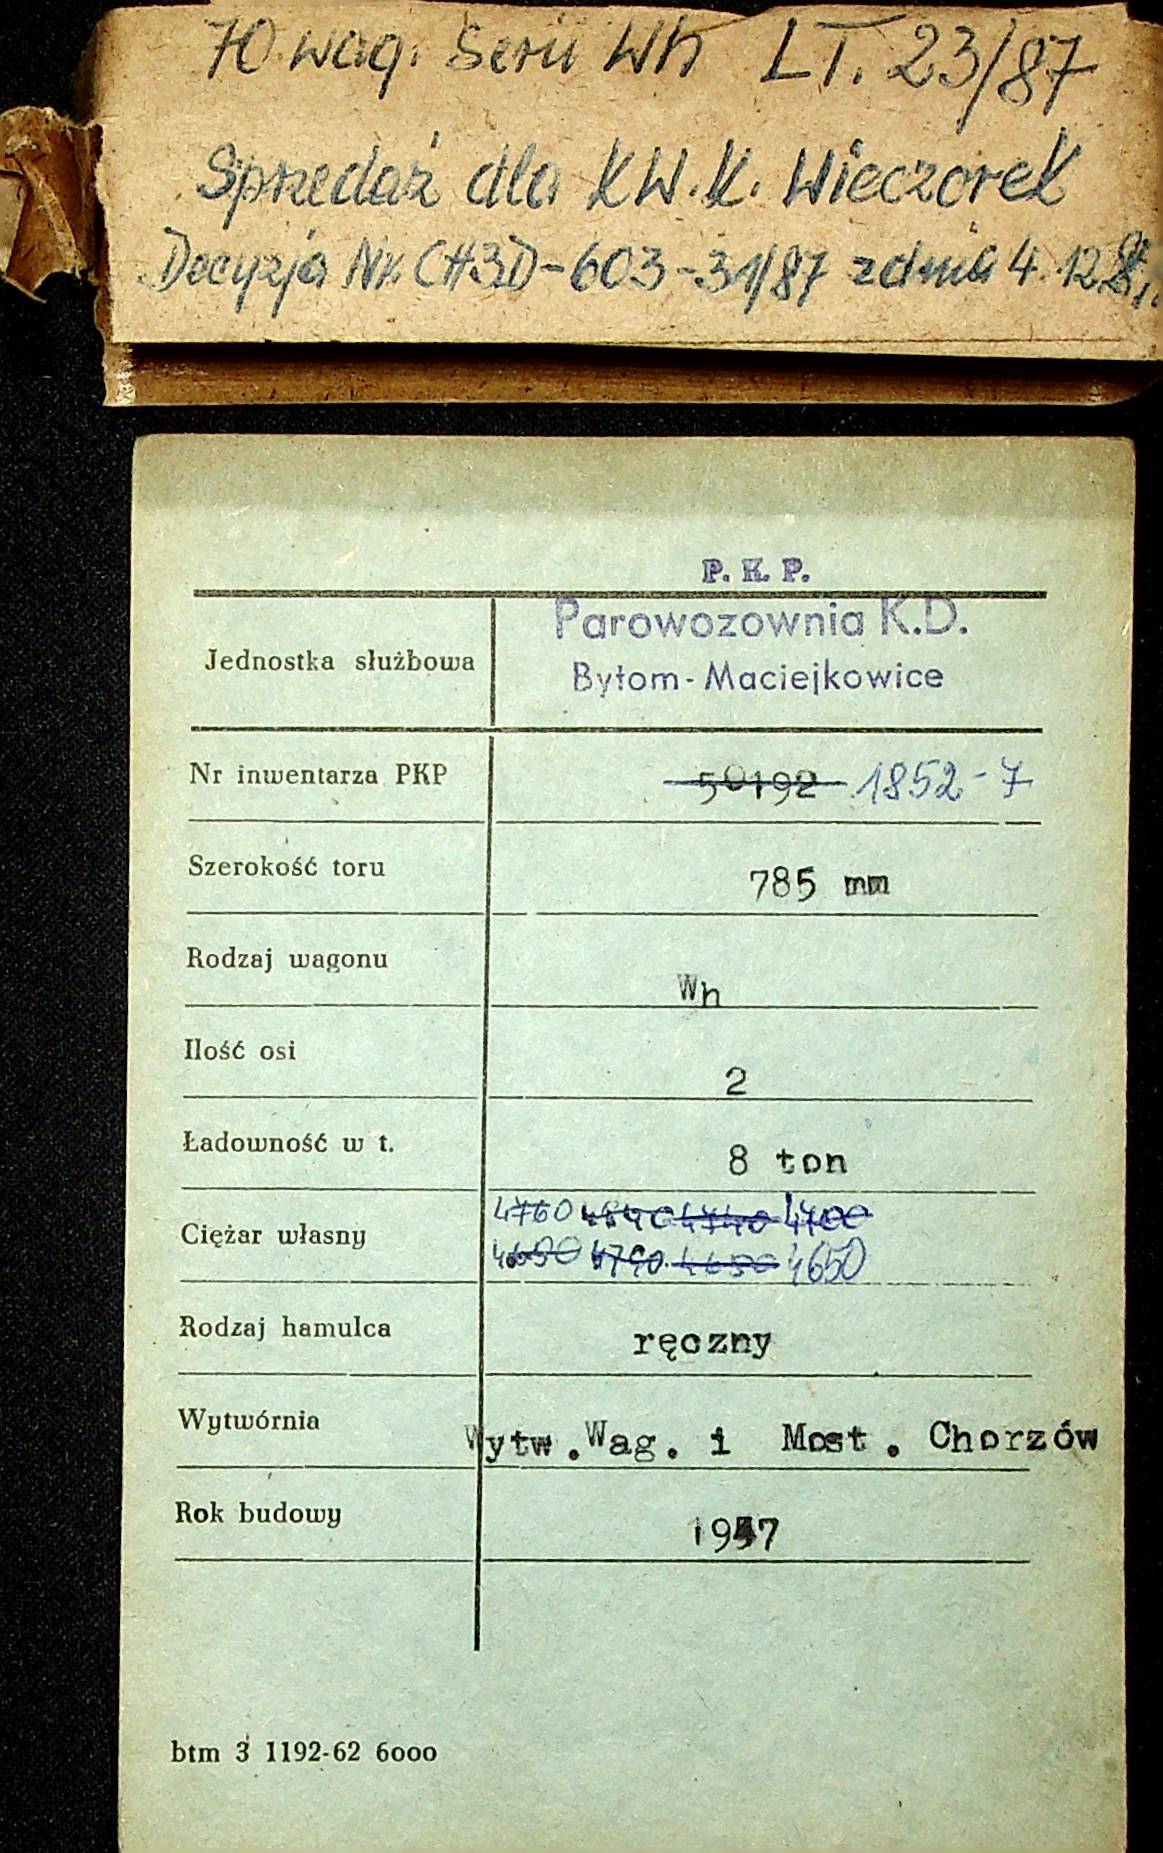 70 wag. Serii Wh LT. 23/87
Sprzedaż dla KW.K. Wieczorek
Decyzja Nr. CH3D-603-31/87 z dnia 4.12.
P. K. P.
Jednostka służbowa Parowozownia K.D.
Bytom-Maciejkowice
Nr inwentarza PKP 50192 1852-7
Szerokość toru 785 mm
Rodzaj wagonu Wh
Ilość osi 2
Ładowność w t. 8 ton
Ciężar własny 4760 4840 4740 4700
4790 4650 4650
Rodzaj hamulca ręczny
Wytwórnia Wytw.Wag. i Most. Chorzów
Rok budowy
btm 3 1192-62 6000